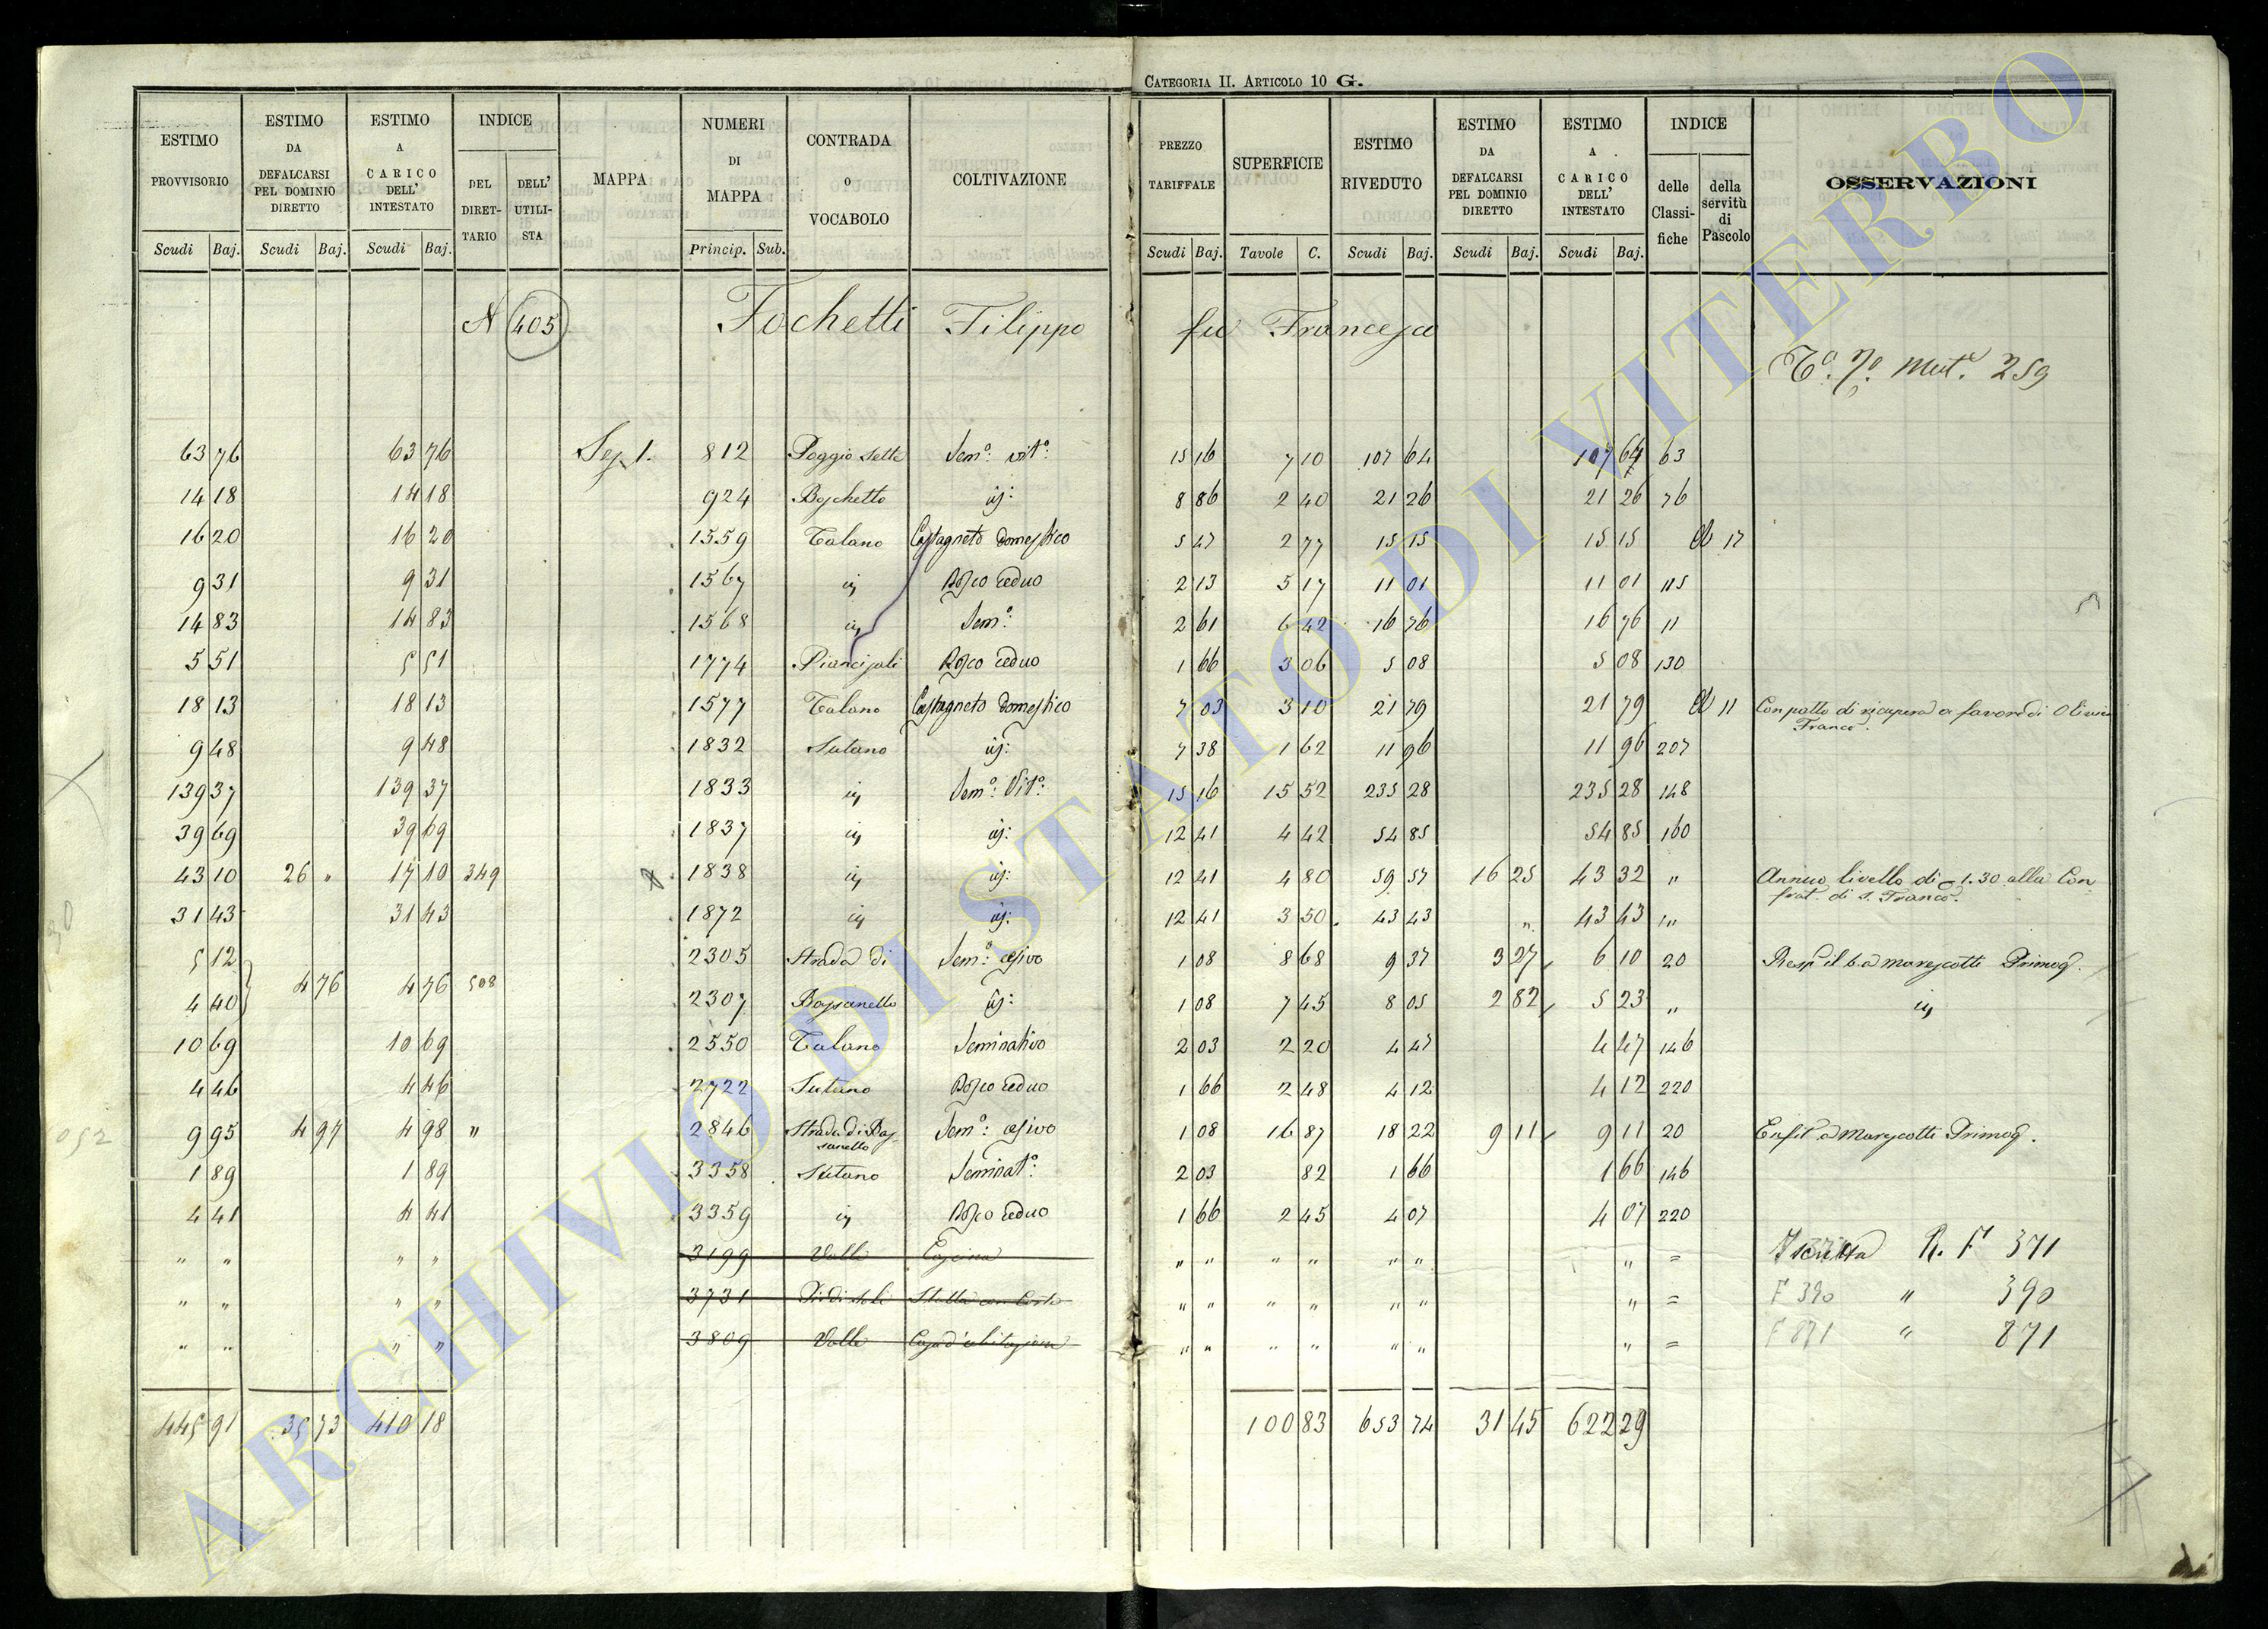 CATEGORIA II. ARTICOLO 10 G.
ESTIMO PROVVISORIO Scudi Baj.
ESTIMO DA DEFALCARSI PEL DOMINIO DIRETTO Scudi Baj.
ESTIMO A CARICO DELL' INTESTATO Scudi Baj.
INDICE DEL DIRETTARIO DELL' UTILISTA
MAPPA
NUMERI DI MAPPA Princip. Sub.
CONTRADA O VOCABOLO
COLTIVAZIONE
PREZZO TARIFFALE Scudi Baj.
SUPERFICIE Tavole C.
ESTIMO RIVEDUTO Scudi Baj.
ESTIMO DA DEFALCARSI PEL DOMINIO DIRETTO Scudi Baj.
ESTIMO A CARICO DELL' INTESTATO Scudi Baj.
INDICE delle Classifiche della servitù di Pascolo
OSSERVAZIONI
N 405 Fochetti Filippo fu Francesco
T.o 7.o Mut.e 259
63 76 63 76 Sez. 1. 812 Poggio Sette Sem.o vit.o 15 16 7 10 107 64 107 64 63
14 18 14 18 924 Boschetto id: 8 86 2 40 21 26 21 26 76
16 20 16 20 1559 Talano Castagneto domestico 5 47 2 77 15 15 15 15 17
9 31 9 31 1567 id Bosco ceduo 2 13 5 17 11 01 11 01 115
14 83 14 83 1568 id Sem.o 2 61 6 42 16 76 16 76 11
5 51 5 51 1774 Bosco ceduo 1 66 3 06 5 08 5 08 130
18 13 18 13 1577 Talano Castagneto domestico 7 03 3 10 21 79 21 79 11 Con patto di ricupera a favore di
Franco.
9 48 9 48 1832 Sutano id: 7 38 1 62 11 96 11 96 207
139 37 139 37 1833 id Sem.o Vit.o 15 16 15 52 235 28 235 28 148
39 69 39 69 1837 id id: 12 41 4 42 54 85 54 85 160
43 10 26 " 17 10 349 1838 id id: 12 41 4 80 59 57 16 25 43 32 " Annuo livello di 1.30 alla Con
frat. di S. Franco.
31 43 31 43 1872 id id: 12 41 3 50 43 43 " 43 43 "
5 12 2305 Strada di Sem.o olivo 1 08 8 68 9 37 3 27 6 10 20 a Marescotti Primog.
4 76 4 76 508
4 40 2307 Bassanello id: 1 08 7 45 8 05 2 82 5 23 " id
10 69 10 69 2550 Talano Seminativo 2 03 2 20 4 47 4 47 146
4 46 4 46 2722 Sutano Bosco ceduo 1 66 2 48 4 12 4 12 220
9 95 4 97 4 98 " 2846 Strada di Bas
sanello Sem.o olivo 1 08 16 87 18 22 9 11 9 11 20 Enfit. a Marescotti Primog.
1 89 1 89 3358 Sutano Seminat.o 2 03 82 1 66 1 66 146
4 41 4 41 3359 id Bosco ceduo 1 66 2 45 4 07 4 07 220
" " " " 3199 Valle Cascina " " " " " " " = Iscritta R. F 371
" " " " 3731 Stalla con Corte " " " " " " " = F 390 " 390
" " " " 3809 Valle Casa d'abitazione " " " " " " " = F 871 " 871
445 91 35 73 410 18 100 83 653 74 31 45 622 29
ARCHIVIO DI STATO DI VITERBO